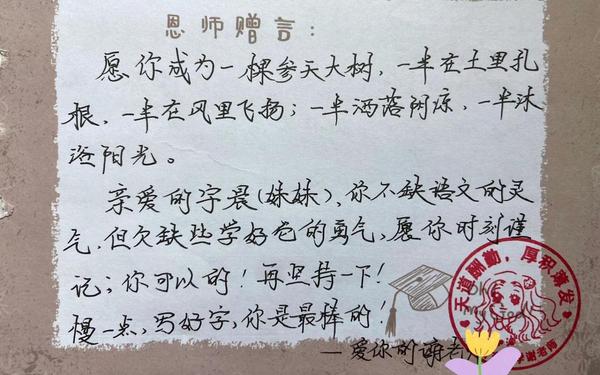 恩师赠言：
愿你成为一棵参天大树，一半在土里扎
根，一半在风里飞扬；一半洒落阴凉，一半沐
浴阳光。
亲爱的宇晨(妹妹)，你不缺语文的灵
气，但欠缺些学好它的勇气，愿你时刻谨
记；你可以的！再坚持一下！
慢一点，写好字，你是最棒的！
—爱你的谢老
天道酬勤，厚积薄发